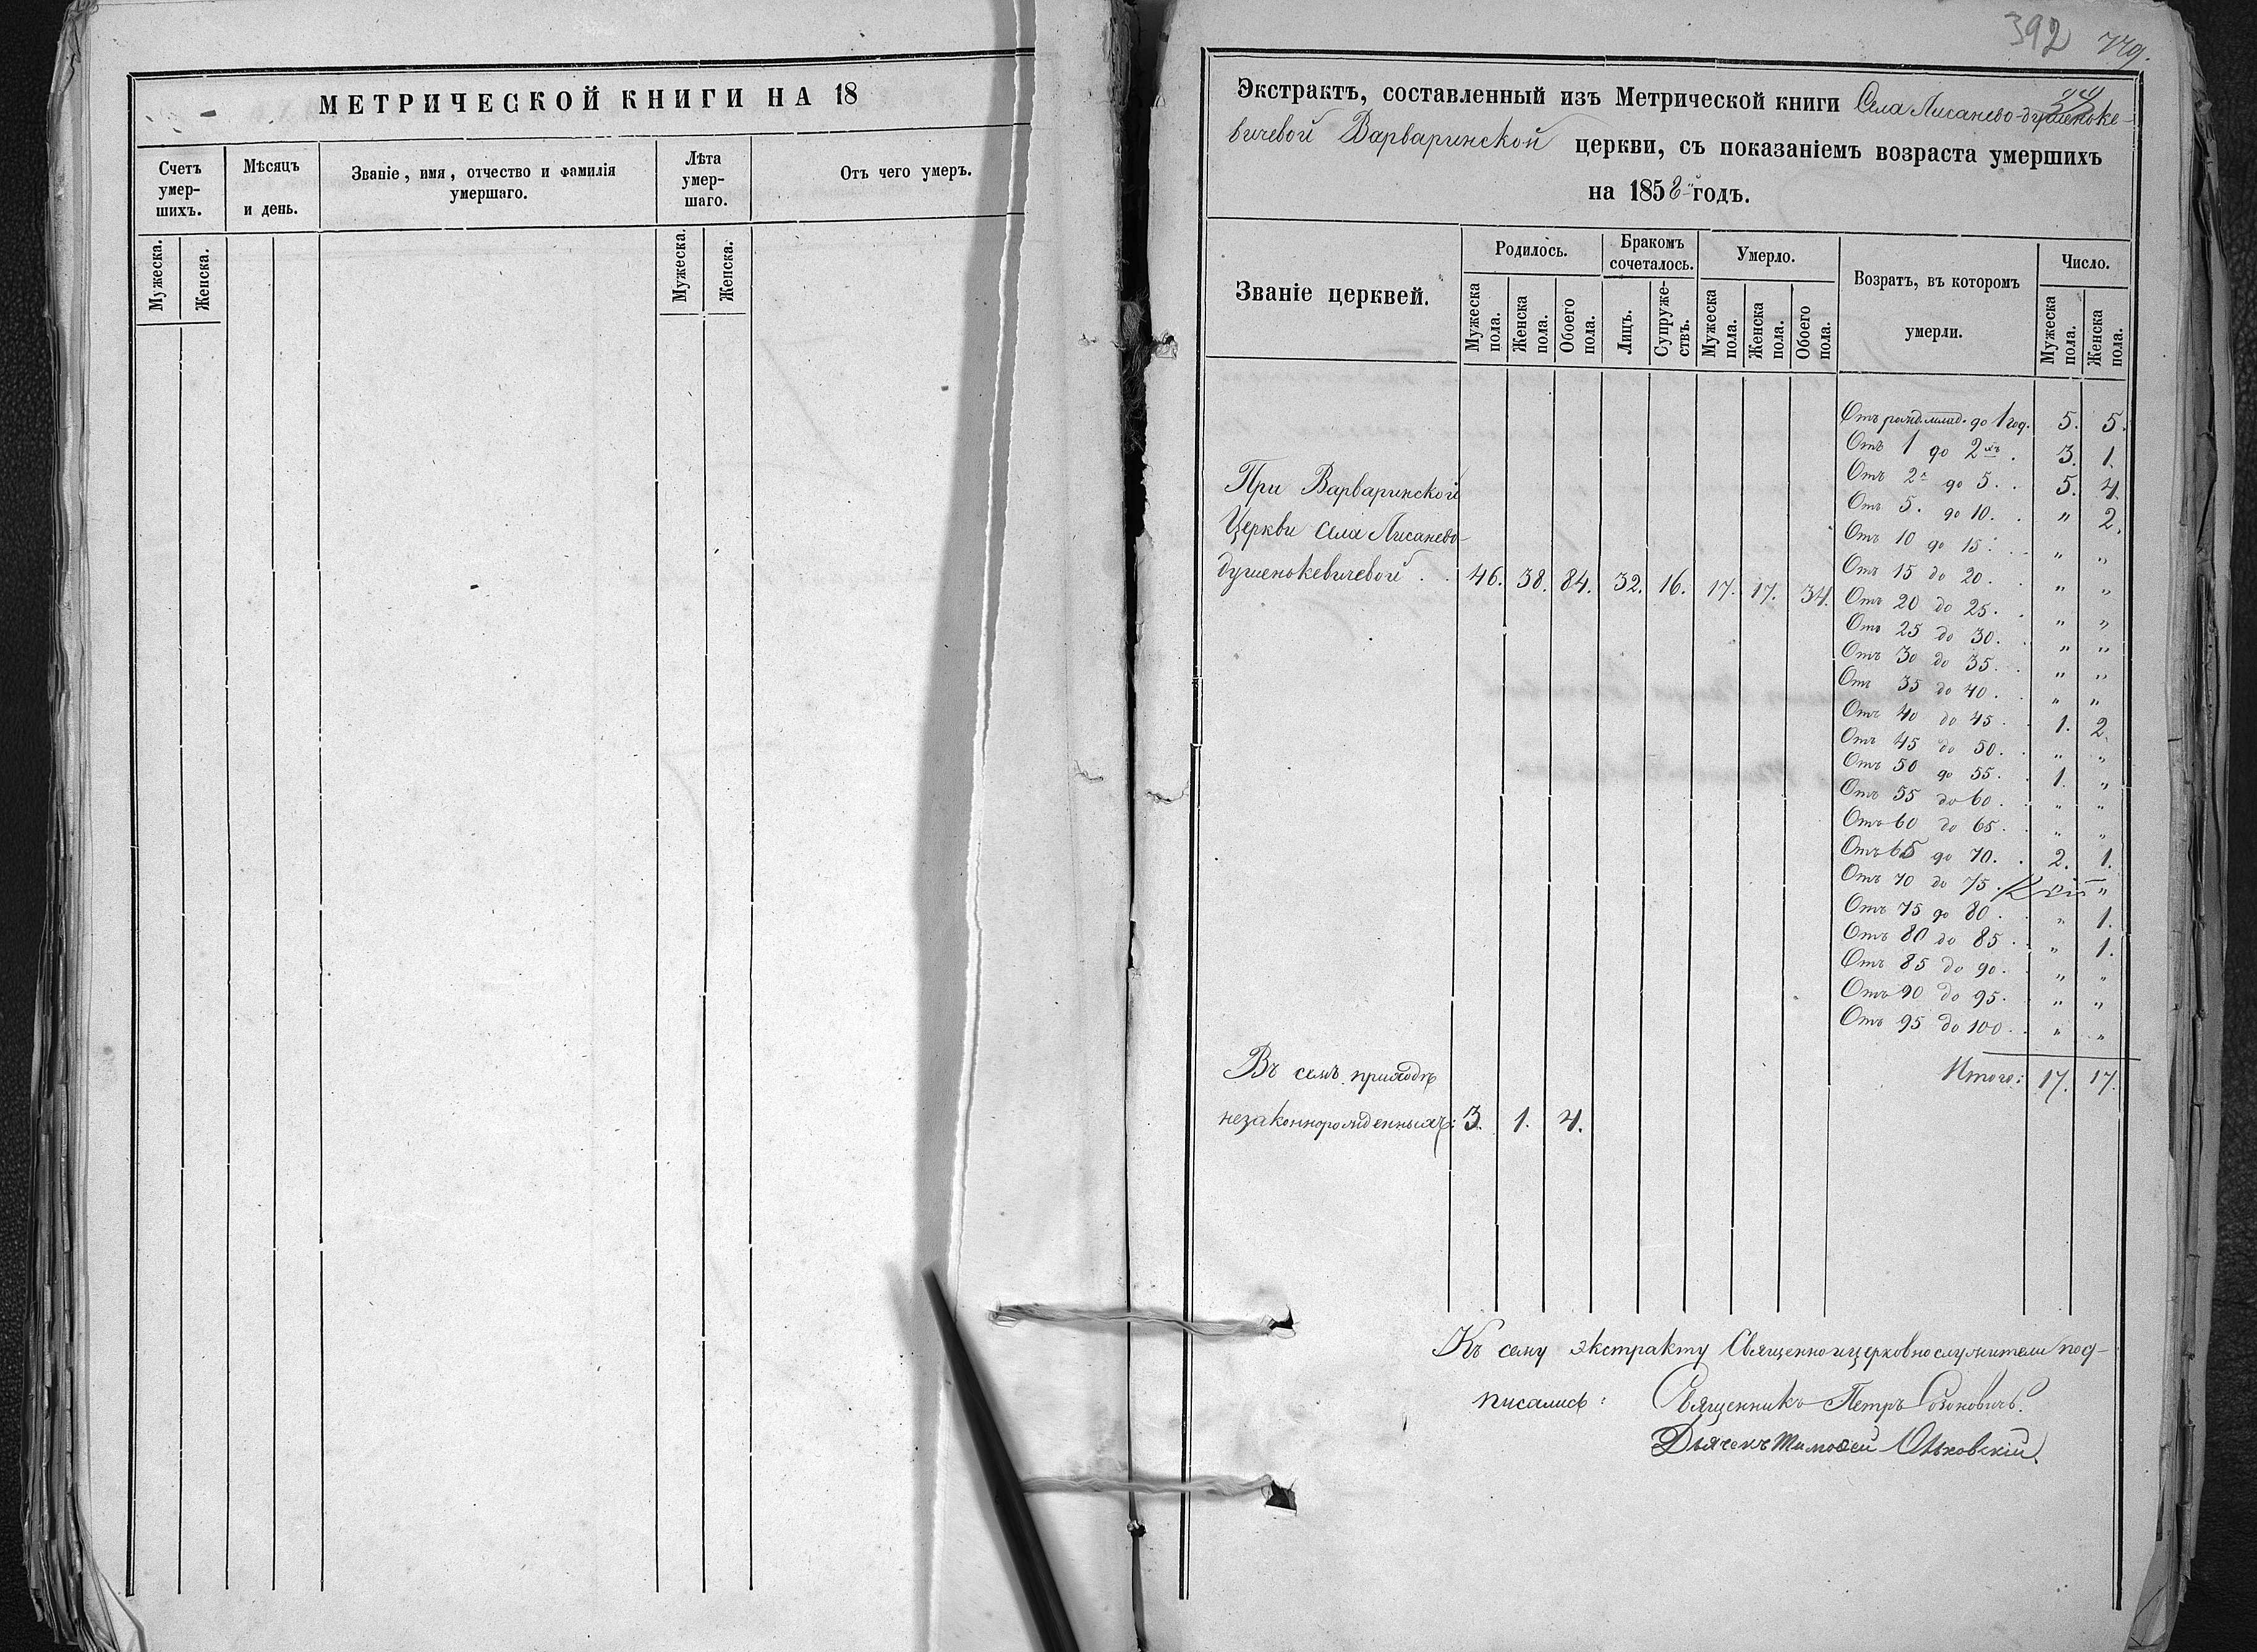 МЕТРИЧЕСКОЙ КНИГИ НА 18
Счетъ умер-шихъ.
Мѣсяцъ и день.
Званіе, имя, отчество и фамилія умершаго.
Лѣта умер-шаго.
Отъ чего умеръ.
Мужеска.
Женска.
Мужеска.
Женска.
392
Экстрактъ, составленный изъ Метрической книги Села Лисанево-душеноке-
вичевой Варваринской церкви, съ показаніемъ возраста умершихъ
на 1858 годъ.
Званіе церквей.
Родилось.
Бракомъ сочеталось.
Умерло.
Возратъ, въ которомъ умерли.
Число.
Мужеска пола.
Женска пола.
Обоего пола.
Лицъ.
Супруже-ствъ.
Мужеска пола.
Женска пола.
Обоего пола.
Мужеска пола.
Женска пола.
Отъ рожд. млад. до 1 год. 5. 5.
Отъ 1 до 2хъ . 3. 1.
Отъ 2х до 5. . 5. 4.
Отъ 5. до 10. . " 2.
Отъ 10 до 15. . " "
Отъ 15 до 20. . " "
Отъ 20 до 25. . " "
Отъ 25 до 30. . " "
Отъ 30 до 35. . " "
Отъ 35 до 40. . " "
Отъ 40 до 45. . 1. 2.
Отъ 45 до 50. . " "
Отъ 50 до 55. . 1. "
Отъ 55 до 60. . " "
Отъ 60 до 65. . " "
Отъ 65 до 70. . 2. 1.
Отъ 70 до 75. " "
Отъ 75 до 80. . " 1.
Отъ 80 до 85. . " 1.
Отъ 85 до 90. . " "
Отъ 90 до 95. . " "
Отъ 95 до 100. . " "
Итого: 17. 17.
При Варваринской
Церкви села Лисанево-
душенокевичевой . . 46. 38. 84. 32. 16. 17. 17. 34.
Въ семъ приходѣ
незаконнорожденныхъ: 3. 1. 4.
Къ сему экстракту Священноицерковнослужители под-
писались: Священникъ Петръ
Дьячекъ Тимоѳей